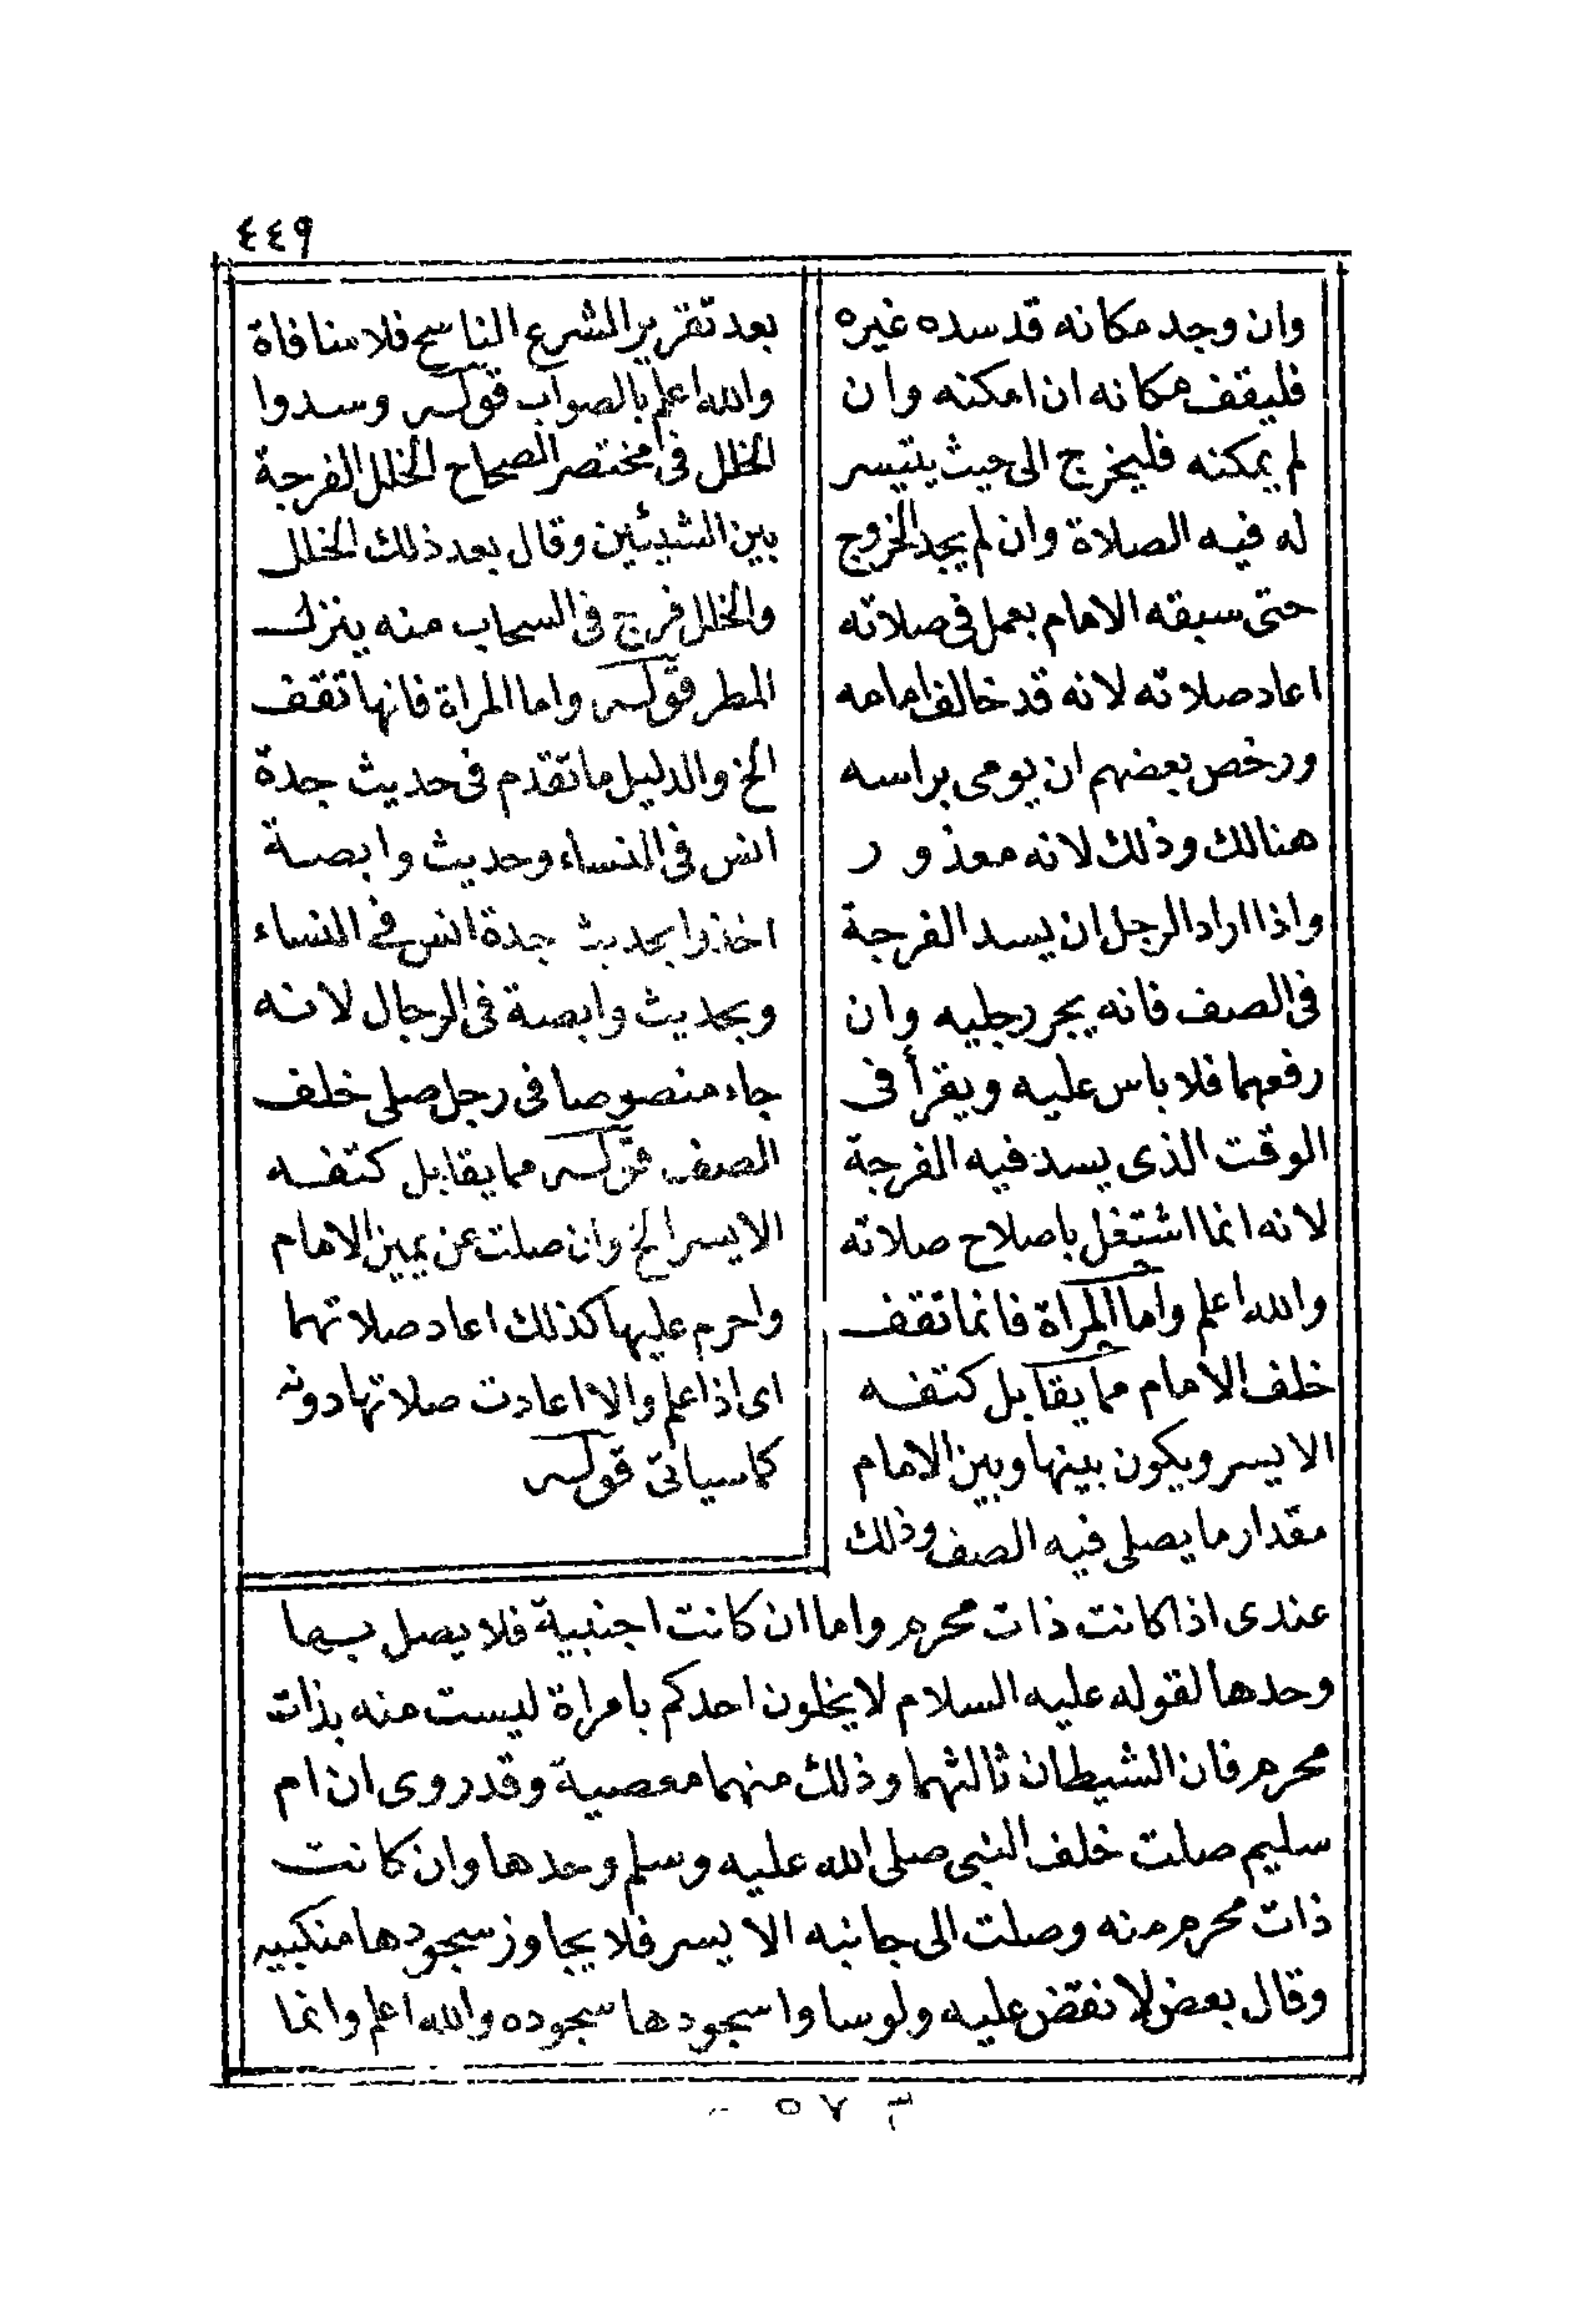 ٤٤٩
وان وجد مكانه قد سده غيره
فليقف مكانه ان امكنه وان
لم يمكنه فليخرج الى حيث يتيسر
له فيه الصلاة وان لم يجد الخروج
حتى سبقه الامام بعمل فى صلاته
اعاد صلاته لانه قد خالف امامه
ورخص بعضهم ان يومى براسه
هنالك وذلك لانه معذور
واذا اراد الرجل ان يسد الفرجة
فى الصف فانه يجر رجليه وان
رفعهما فلا باس عليه ويقرأ فى
الوقت الذى يسد فيه الفرجة
لانه انما اشتغل باصلاح صلاته
والله اعلم واما المراة فانما تقف
خلف الامام مما يقابل كتفه
الايسر ويكون بينها وبين الامام
مقدار ما يصلى فيه الصف وذلك
بعد تقرير الشرع الناسخ فلا منافاة
والله اعلم بالصواب قوله وسدوا
الخلل فى مختصر الصحاح الخلل الفرجة
بين الشيئين وقال بعد ذلك الخلل
والخلل فرج فى السحاب منه ينزل
المطر قوله واما المراة فانها تقف
الخ والدليل ما تقدم فى حديث جدة
انس فى النساء وحديث وابصة
اخذوا بحديث جدة انس فى النساء
وبحديث وابصة فى الرجال لانه
جاء منصوصا فى رجل صلى خلف
الصف قوله مما يقابل كتفه
الايسر الخ وان صلت عن يمين الامام
واحرم عليها كذلك اعاد صلاتهما
اى اذا علم والا اعادت صلاتها دونه
كما سياتى قوله
عندى اذا كانت ذات محرم واما ان كانت اجنبية فلا يصل بها
وحدها لقوله عليه السلام لا يخلون احدكم بامراة ليست منه بذات
محرم فان الشيطان ثالثهما وذلك منهما معصية وقد روى ان ام
سليم صلت خلف النبى صلى الله عليه وسلم وحدها وان كانت
ذات محرم منه وصلت الى جانبه الايسر فلا يجاوز سجودها منكبيه
وقال بعض لا نقض عليه ولو ساوا سجودها سجوده والله اعلم وانما
م ٥٧